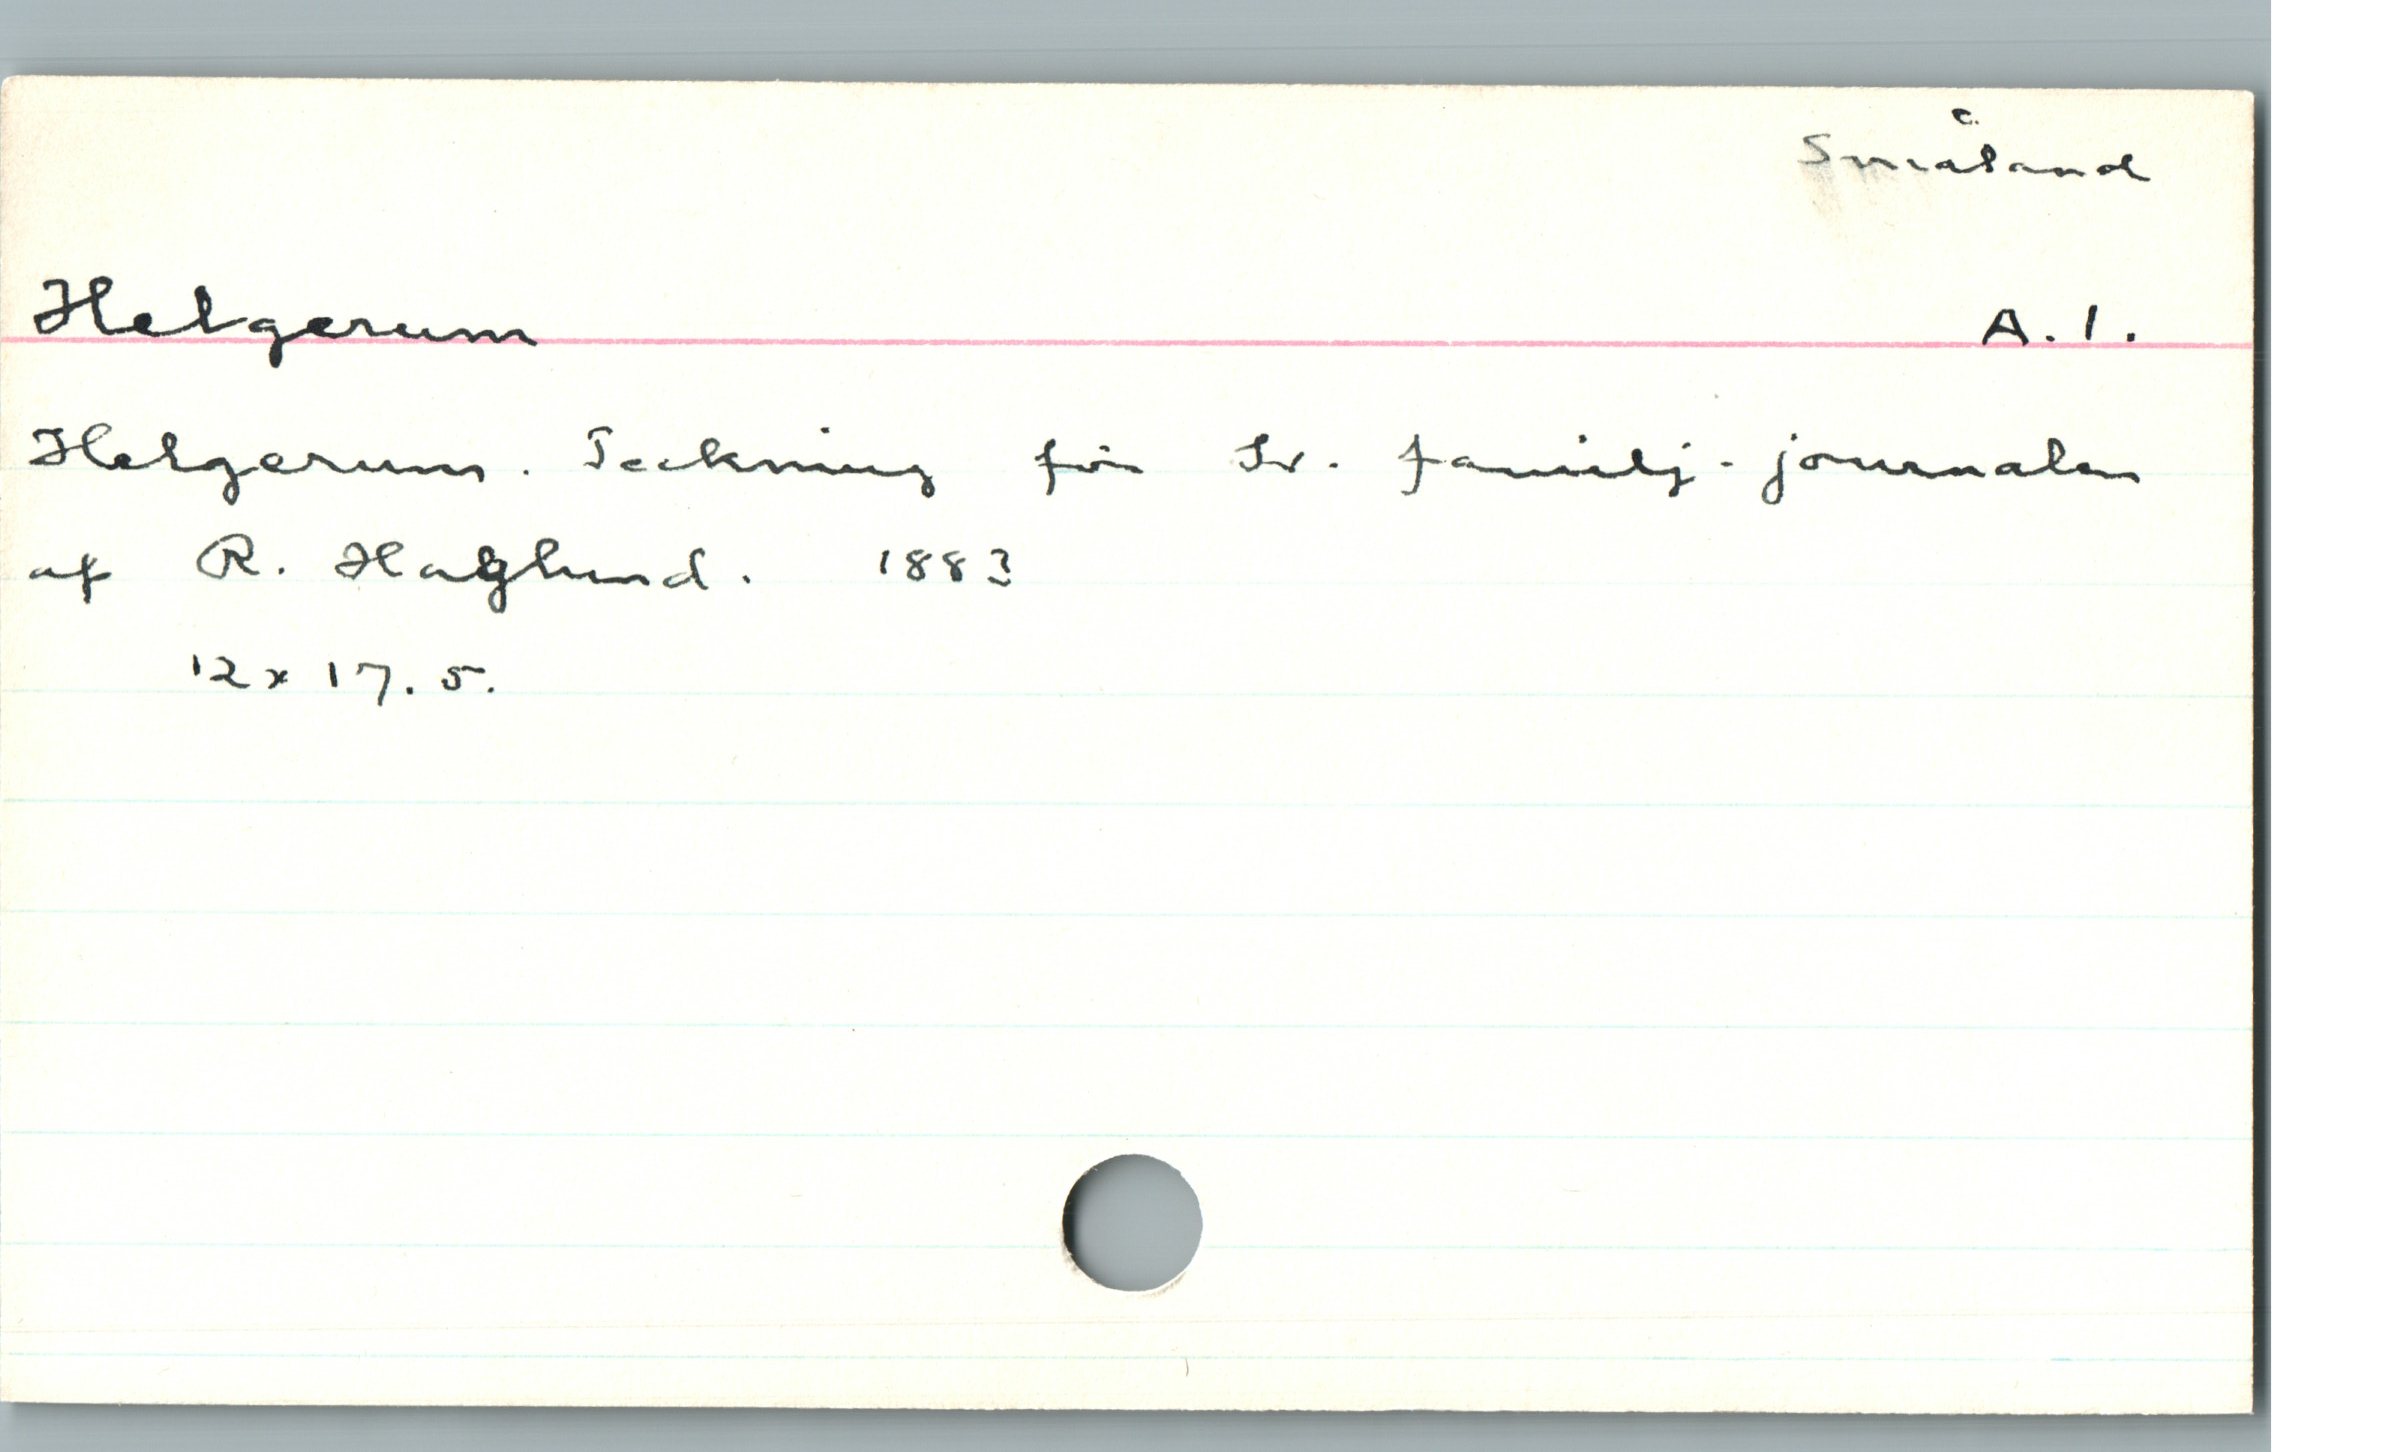 Småland
Helgerum A. 1.
Helgerum. Teckning för Sv. familj-journalen
af R. Haglund. 1883
12 x 17.5.